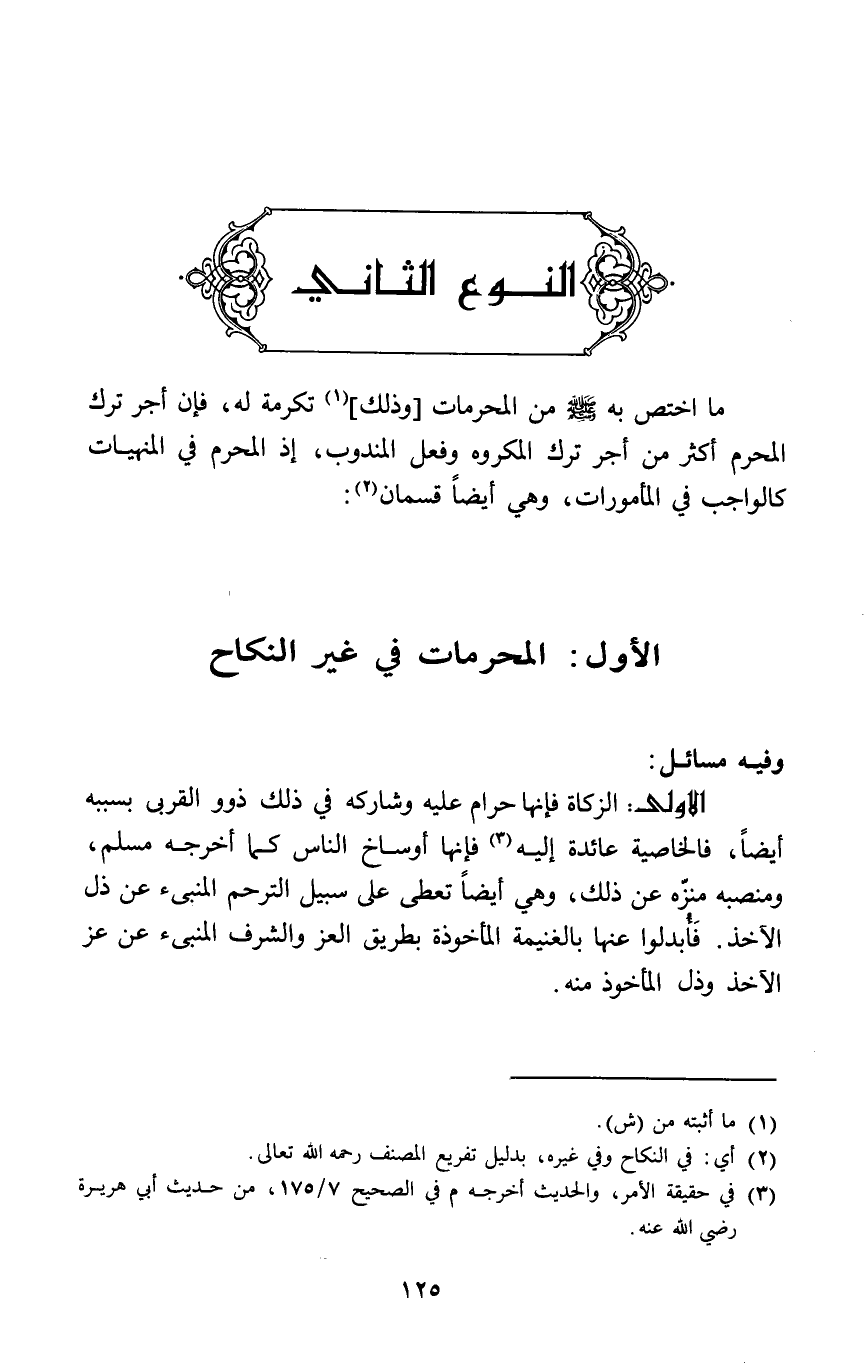 النوع الثاني
ما اختص به ﷺ من المحرمات [وذلك](١) تكرمة له، فإن أجر ترك
المحرم أكثر من أجر ترك المكروه وفعل المندوب، إذ المحرم في المنهيات
كالواجب في المأمورات، وهي أيضاً قسمان(٢):
الأول: المحرمات في غير النكاح
وفيه مسائل:
الأولى: الزكاة فإنها حرام عليه وشاركه في ذلك ذوو القربى بسببه
أيضاً، فالخاصية عائدة إليه(٣) فإنها أوساخ الناس كما أخرجه مسلم،
ومنصبه منزّه عن ذلك، وهي أيضاً تعطى على سبيل الترحم المنبىء عن ذل
الآخذ. فَأُبدلوا عنها بالغنيمة المأخوذة بطريق العز والشرف المنبىء عن عز
الآخذ وذل المأخوذ منه.
(١) ما أثبته من (ش).
(٢) أي: في النكاح وفي غيره، بدليل تفريع المصنف رحمه الله تعالى.
(٣) في حقيقة الأمر، والحديث أخرجه م في الصحيح ١٧٥/٧، من حديث أبي هريرة
رضي الله عنه.
١٢٥